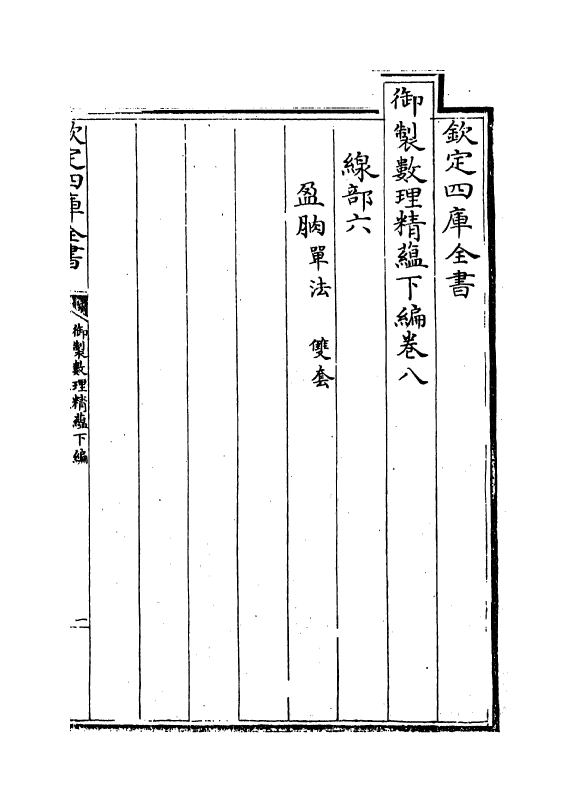 欽定四庫全書
御製數理精蘊下編卷八
線部六
盈朒單法　雙套
欽定四庫全書
御製數理精蘊下編
一